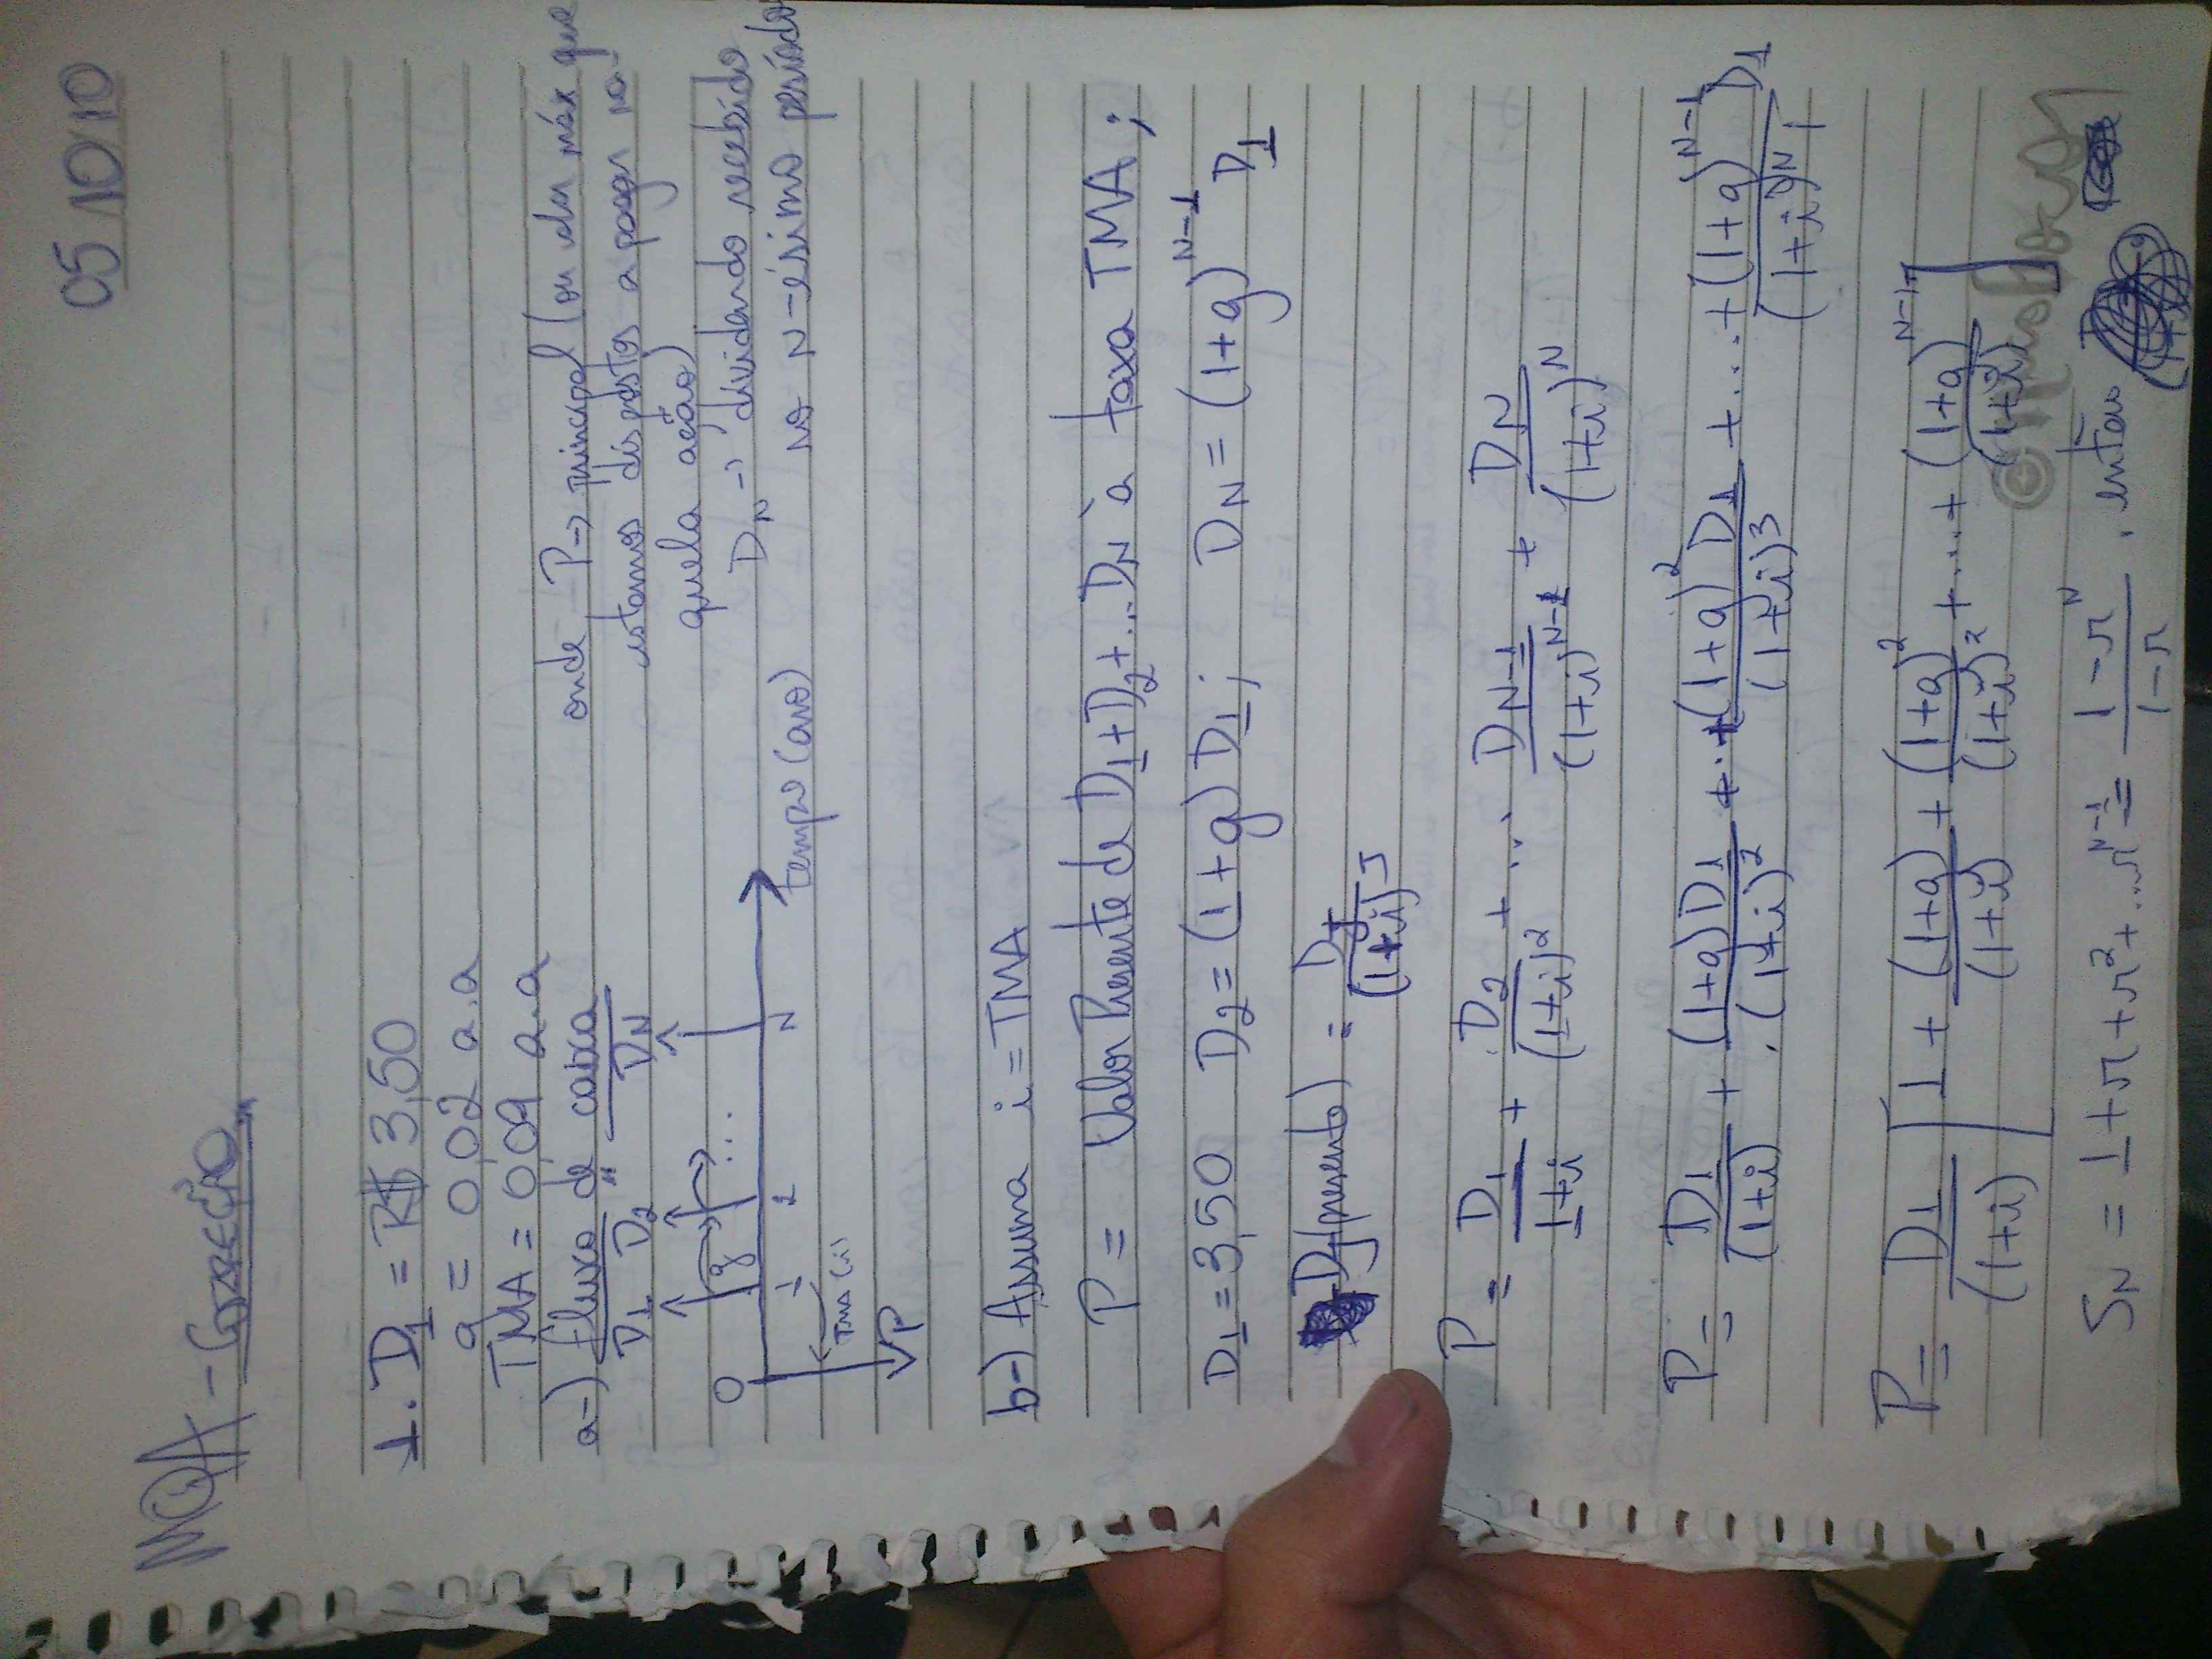 05/10/10
MQA - Correção
1. D1 = R$ 3,50
g = 0,02 a.a
TMA = 0,09 a.a
a-) fluxo de caixa
onde P → principal (ou valor máx que
estamos dispostos a pagar na-
quela ação)
DN → dividendo recebido
no N-ésimo período
D1 D2 ... DN
g ...
0 1 2 N
tempo (ano)
TMA (i)
P
b-) Assuma i = TMA
P = Valor Presente de D1+D2+...DN à taxa TMA;
D1 = 3,50 D2 = (1+g) D1; DN = (1+g)^N-1 D1
DJ(presente) = DJ/(1+i)^J
P = D1/1+i + D2/(1+i)^2 + ... DN-1/(1+i)^N-1 + DN/(1+i)^N
P = D1/(1+i) + (1+g)D1/(1+i)^2 + (1+g)^2 D1/(1+i)^3 + ... + (1+g)^N-1 D1/(1+i)^N
P = D1/(1+i) [1 + (1+g)/(1+i) + (1+g)^2/(1+i)^2 + ... + (1+g)^N-1/(1+i)]
SN = 1+r+r^2+...r^N-1 = 1-r^N/1-r , então